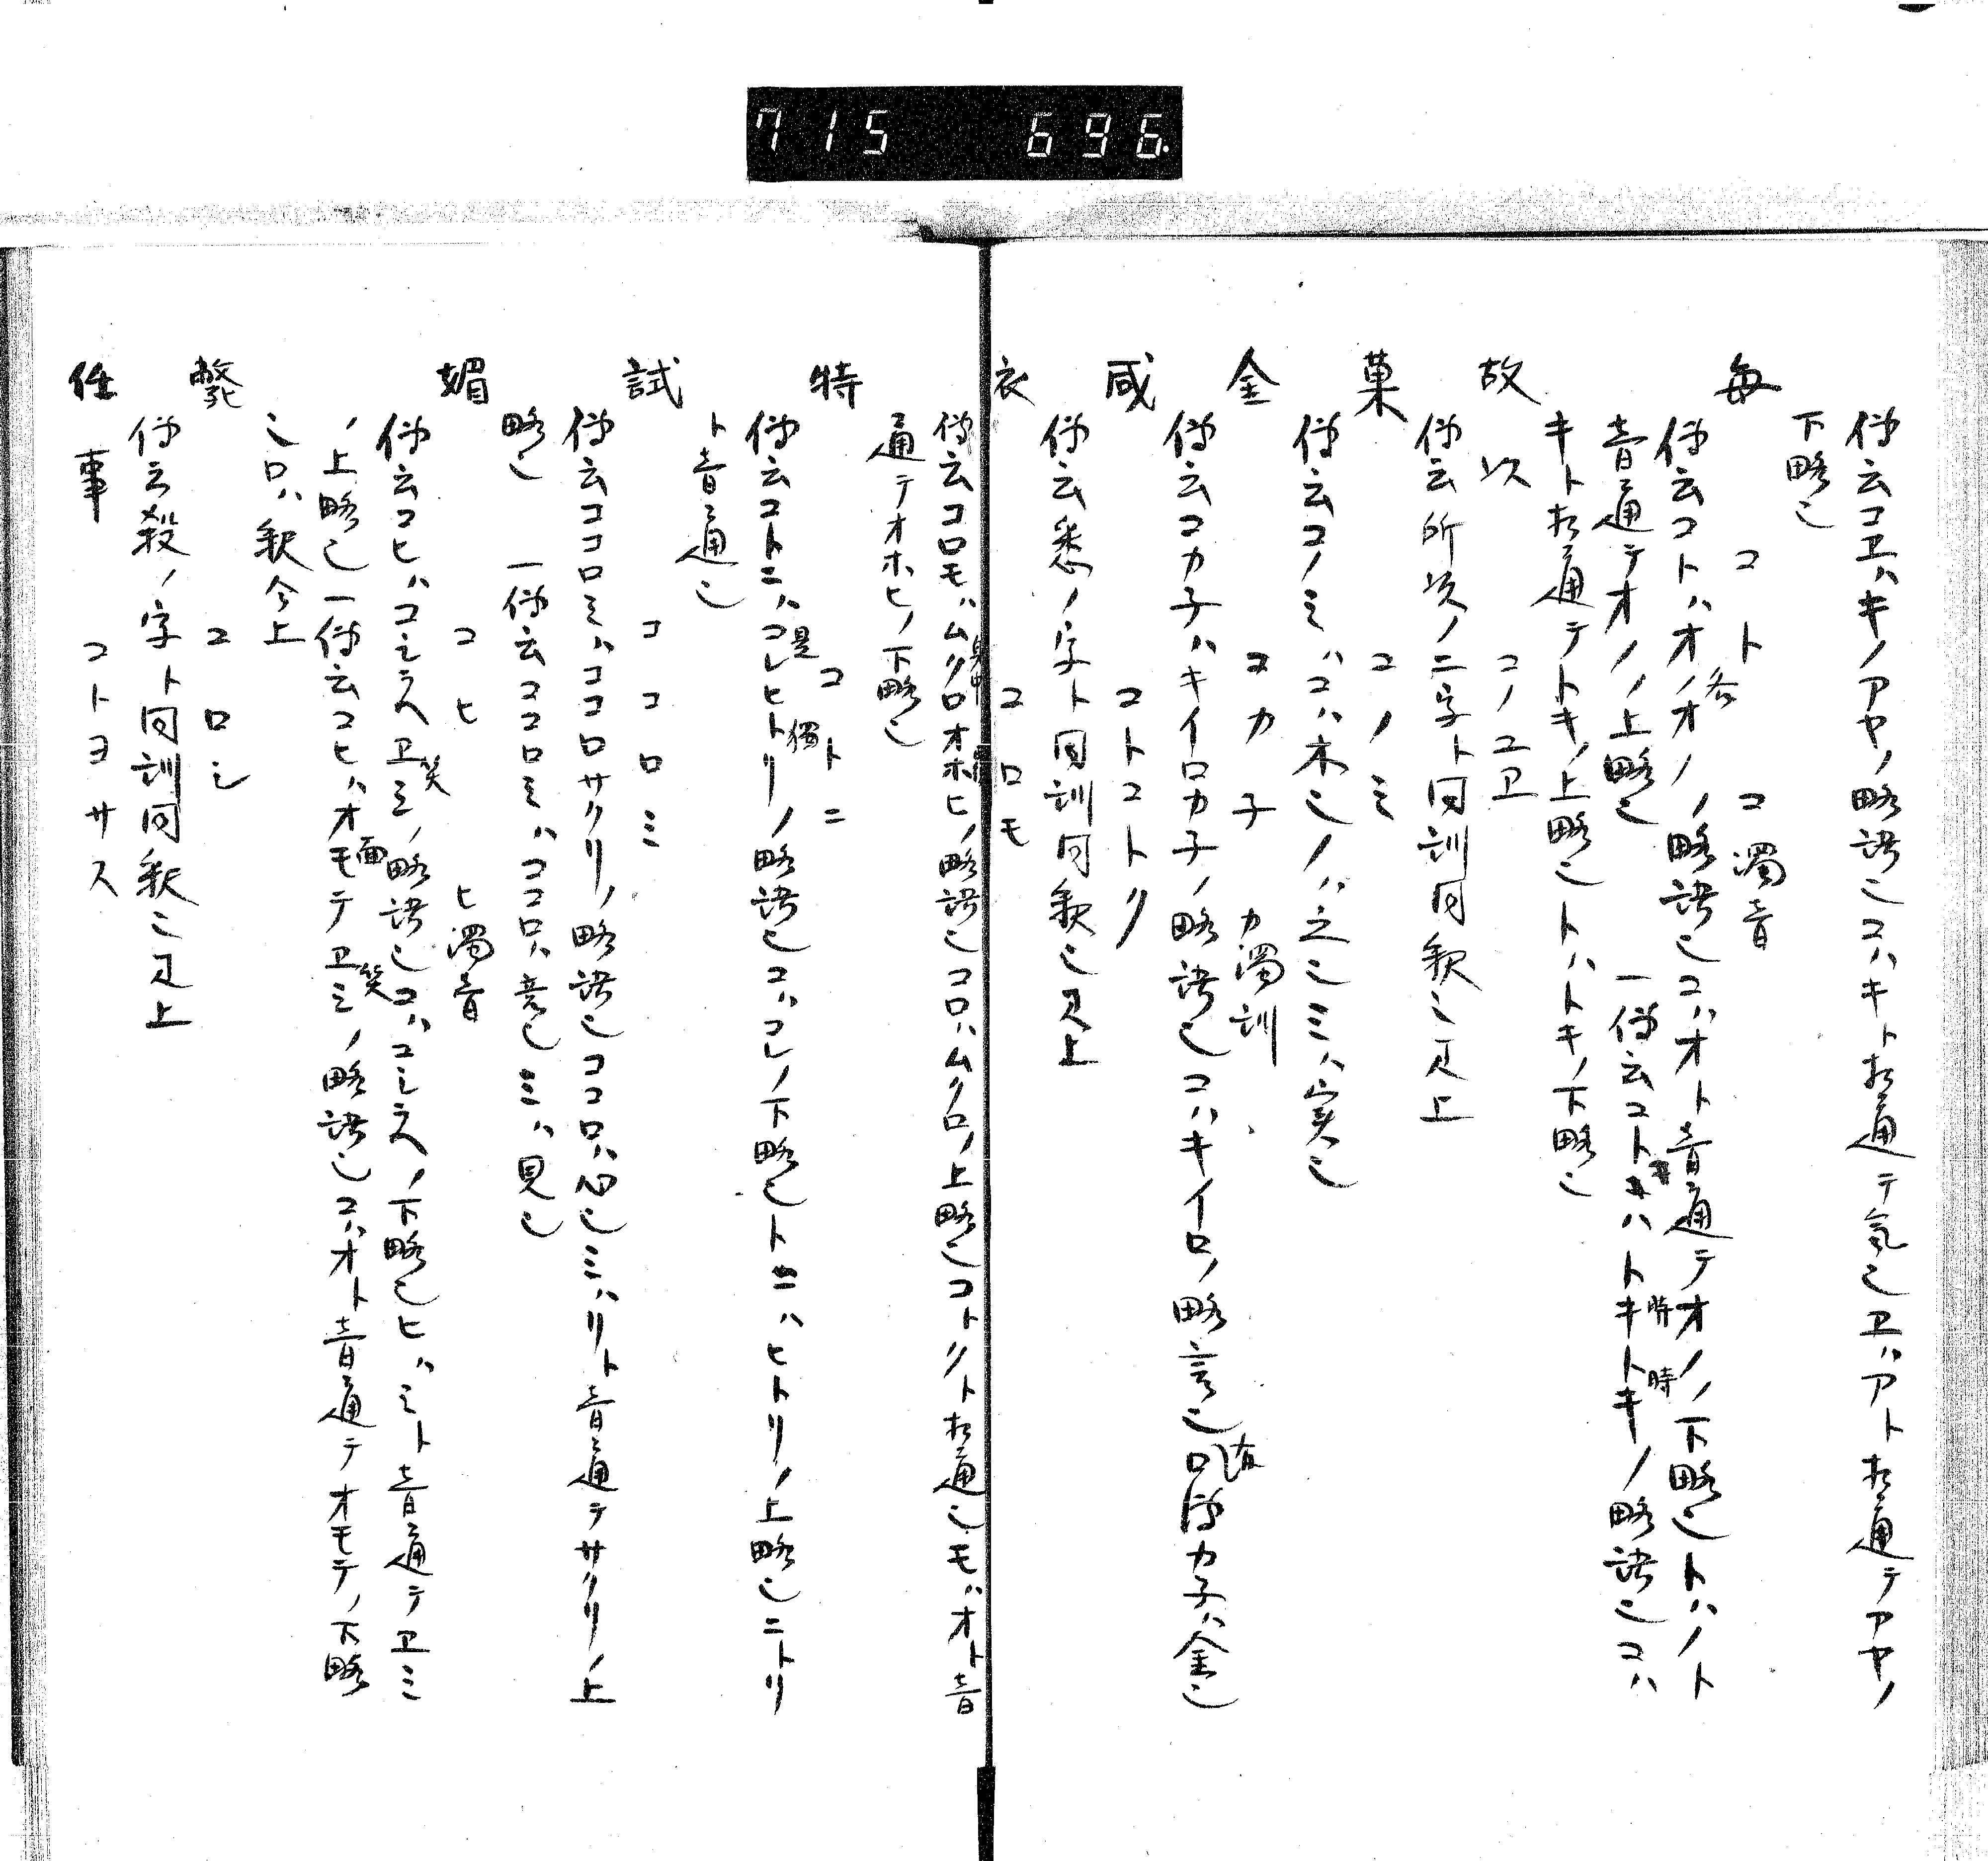 715 696.
傳云コヱハキノアヤノ略語也コハキト相通テ気也ヱハアト相通テアヤノ
下略也
毎 コト コ濁音
傳云コトハオノオノ各ノ略語也コハオト音通テオノノ下略也トハノト
音通テオノノ上略也 一傳云コトハトキ時トキ時ノ略語也コハ
キト相通テトキノ上略也トハトキノ下略也
故次 コノユヱ
傳云所次ノ二字ト同訓同釈也見上
菓 コノミ
傳云コノミハコハ木也ノハ之也ミハ実也
金 コカ子 カ濁訓
傳云コカ子ハキイロカ子ノ略語也コハキイロノ略言也カ子ハ金也
咸 コトコトク
傳云悉ノ字ト同訓同釈也見上
衣 コロモ
傳云コロモハムクロオホヒノ略語也コロハムクロノ上略也コトクト相通也モハオト音
通テオホヒノ下略也
特 コトニ
傳云コトニハコレ是ヒトリ獨ノ略語也コハコレノ下略也トニハヒトリノ上略也ニトリ
ト音通也
試 ココロミ
傳云ココロミハココロサクリノ略語也ココロハ心也ミハリト音通テサクリノ上
略也 一傳云ココロミハココロハ意也ミハ見也
媚 コヒ ヒ濁音
傳云コヒハコシラヘヱミ笑ノ略語也コハコシラヘノ下略也ヒハミト音通テヱミ
ノ上略也一傳云コヒハオモテ面ヱミ笑ノ略語也コハオト音通テオモテノ下略
也ロハ釈今上
斃 コロシ
傳云殺ノ字ト同訓同釈也見上
任事 コトヨサス